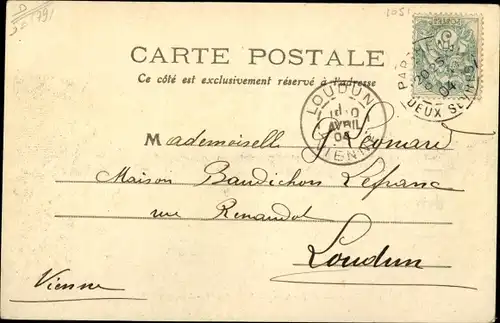 1791
1051
CARTE POSTALE
Ce côté est exclusivement réservé à l'adresse
POSTES
PARTHENAY
DEUX SEVRES
04
LOUDUN
AVRIL
04
VIENNE
Mademoiselle
Maison Baudichon Lefranc
rue Renaudot
Loudun
Vienne